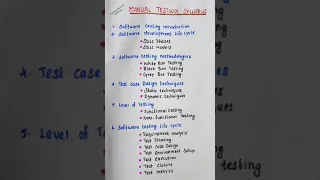 MANUAL TESTING SYLLABUS
1. Software testing introduction
2. Software development Life cycle
• SDLC Phases
• SDLC models
3. Software testing methodologies
• White Box Testing
• Black Box Testing
• Grey Box Testing
4. Test Case Design Techniques
• Static techniques
• Dynamic techniques
5. Level of Testing
• Functional Testing
• Non-Functional Testing
6. Software testing Life Cycle
• Requirements analysis
• Test Planning
• Test Case Design
• Test Environment Setup
• Test Execution
• Test Closure
• Test metrics
4. Test Case
5. Level of T
testing